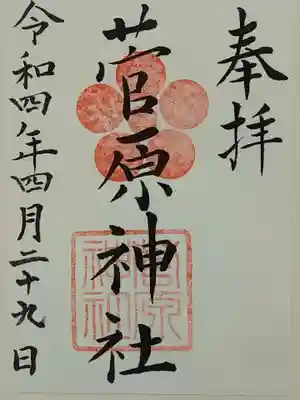 奉拝
菅原神社
令和四年四月二十九日
菅原
神社